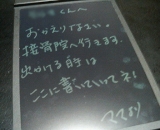 くんへ
おかえりなさい。
接骨院へ行きます。
出かける前は
ここに書いていってネ!
ママより